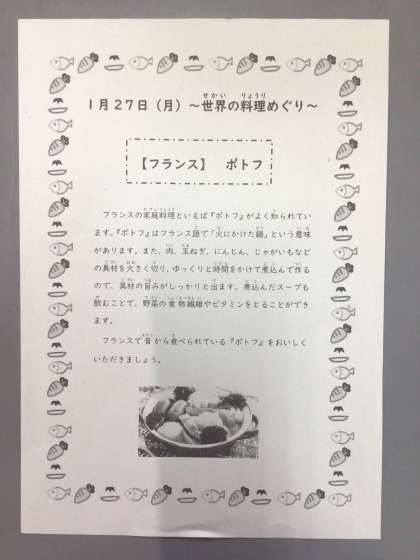 1月27日(月)~世界の料理めぐり~
【フランス】 ポトフ
フランスの家庭料理といえば『ポトフ』がよく知られてい
ます。『ポトフ』はフランス語で「火にかけた鍋」という意味
があります。また、肉、玉ねぎ、にんじん、じゃがいもなど
の具材を大きく切り、ゆっくりと時間をかけて煮込んで作る
ので、具材の旨みがしっかりと出ます。煮込んだスープも
飲むことで、野菜の食物繊維やビタミンをとることができ
ます。
フランスで昔から食べられている『ポトフ』をおいしく
いただきましょう。